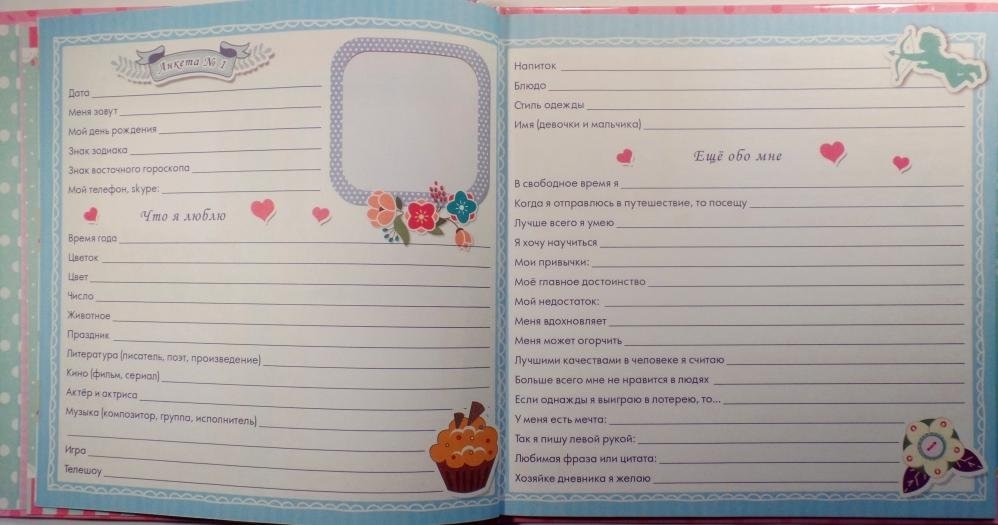 Анкета № 1
Дата
Меня зовут
Мой день рождения
Знак зодиака
Знак восточного гороскопа
Мой телефон, skype:
Что я люблю
Время года
Цветок
Цвет
Число
Животное
Праздник
Литература (писатель, поэт, произведение)
Кино (фильм, сериал)
Актёр и актриса
Музыка (композитор, группа, исполнитель)
Игра
Телешоу
Напиток
Блюдо
Стиль одежды
Имя (девочки и мальчика)
Ещё обо мне
В свободное время я
Когда я отправлюсь в путешествие, то посещу
Лучше всего я умею
Я хочу научиться
Мои привычки:
Моё главное достоинство
Мой недостаток:
Меня вдохновляет
Меня может огорчить
Лучшими качествами в человеке я считаю
Больше всего мне не нравится в людях
Если однажды я выиграю в лотерею, то...
У меня есть мечта:
Так я пишу левой рукой:
Любимая фраза или цитата:
Хозяйке дневника я желаю